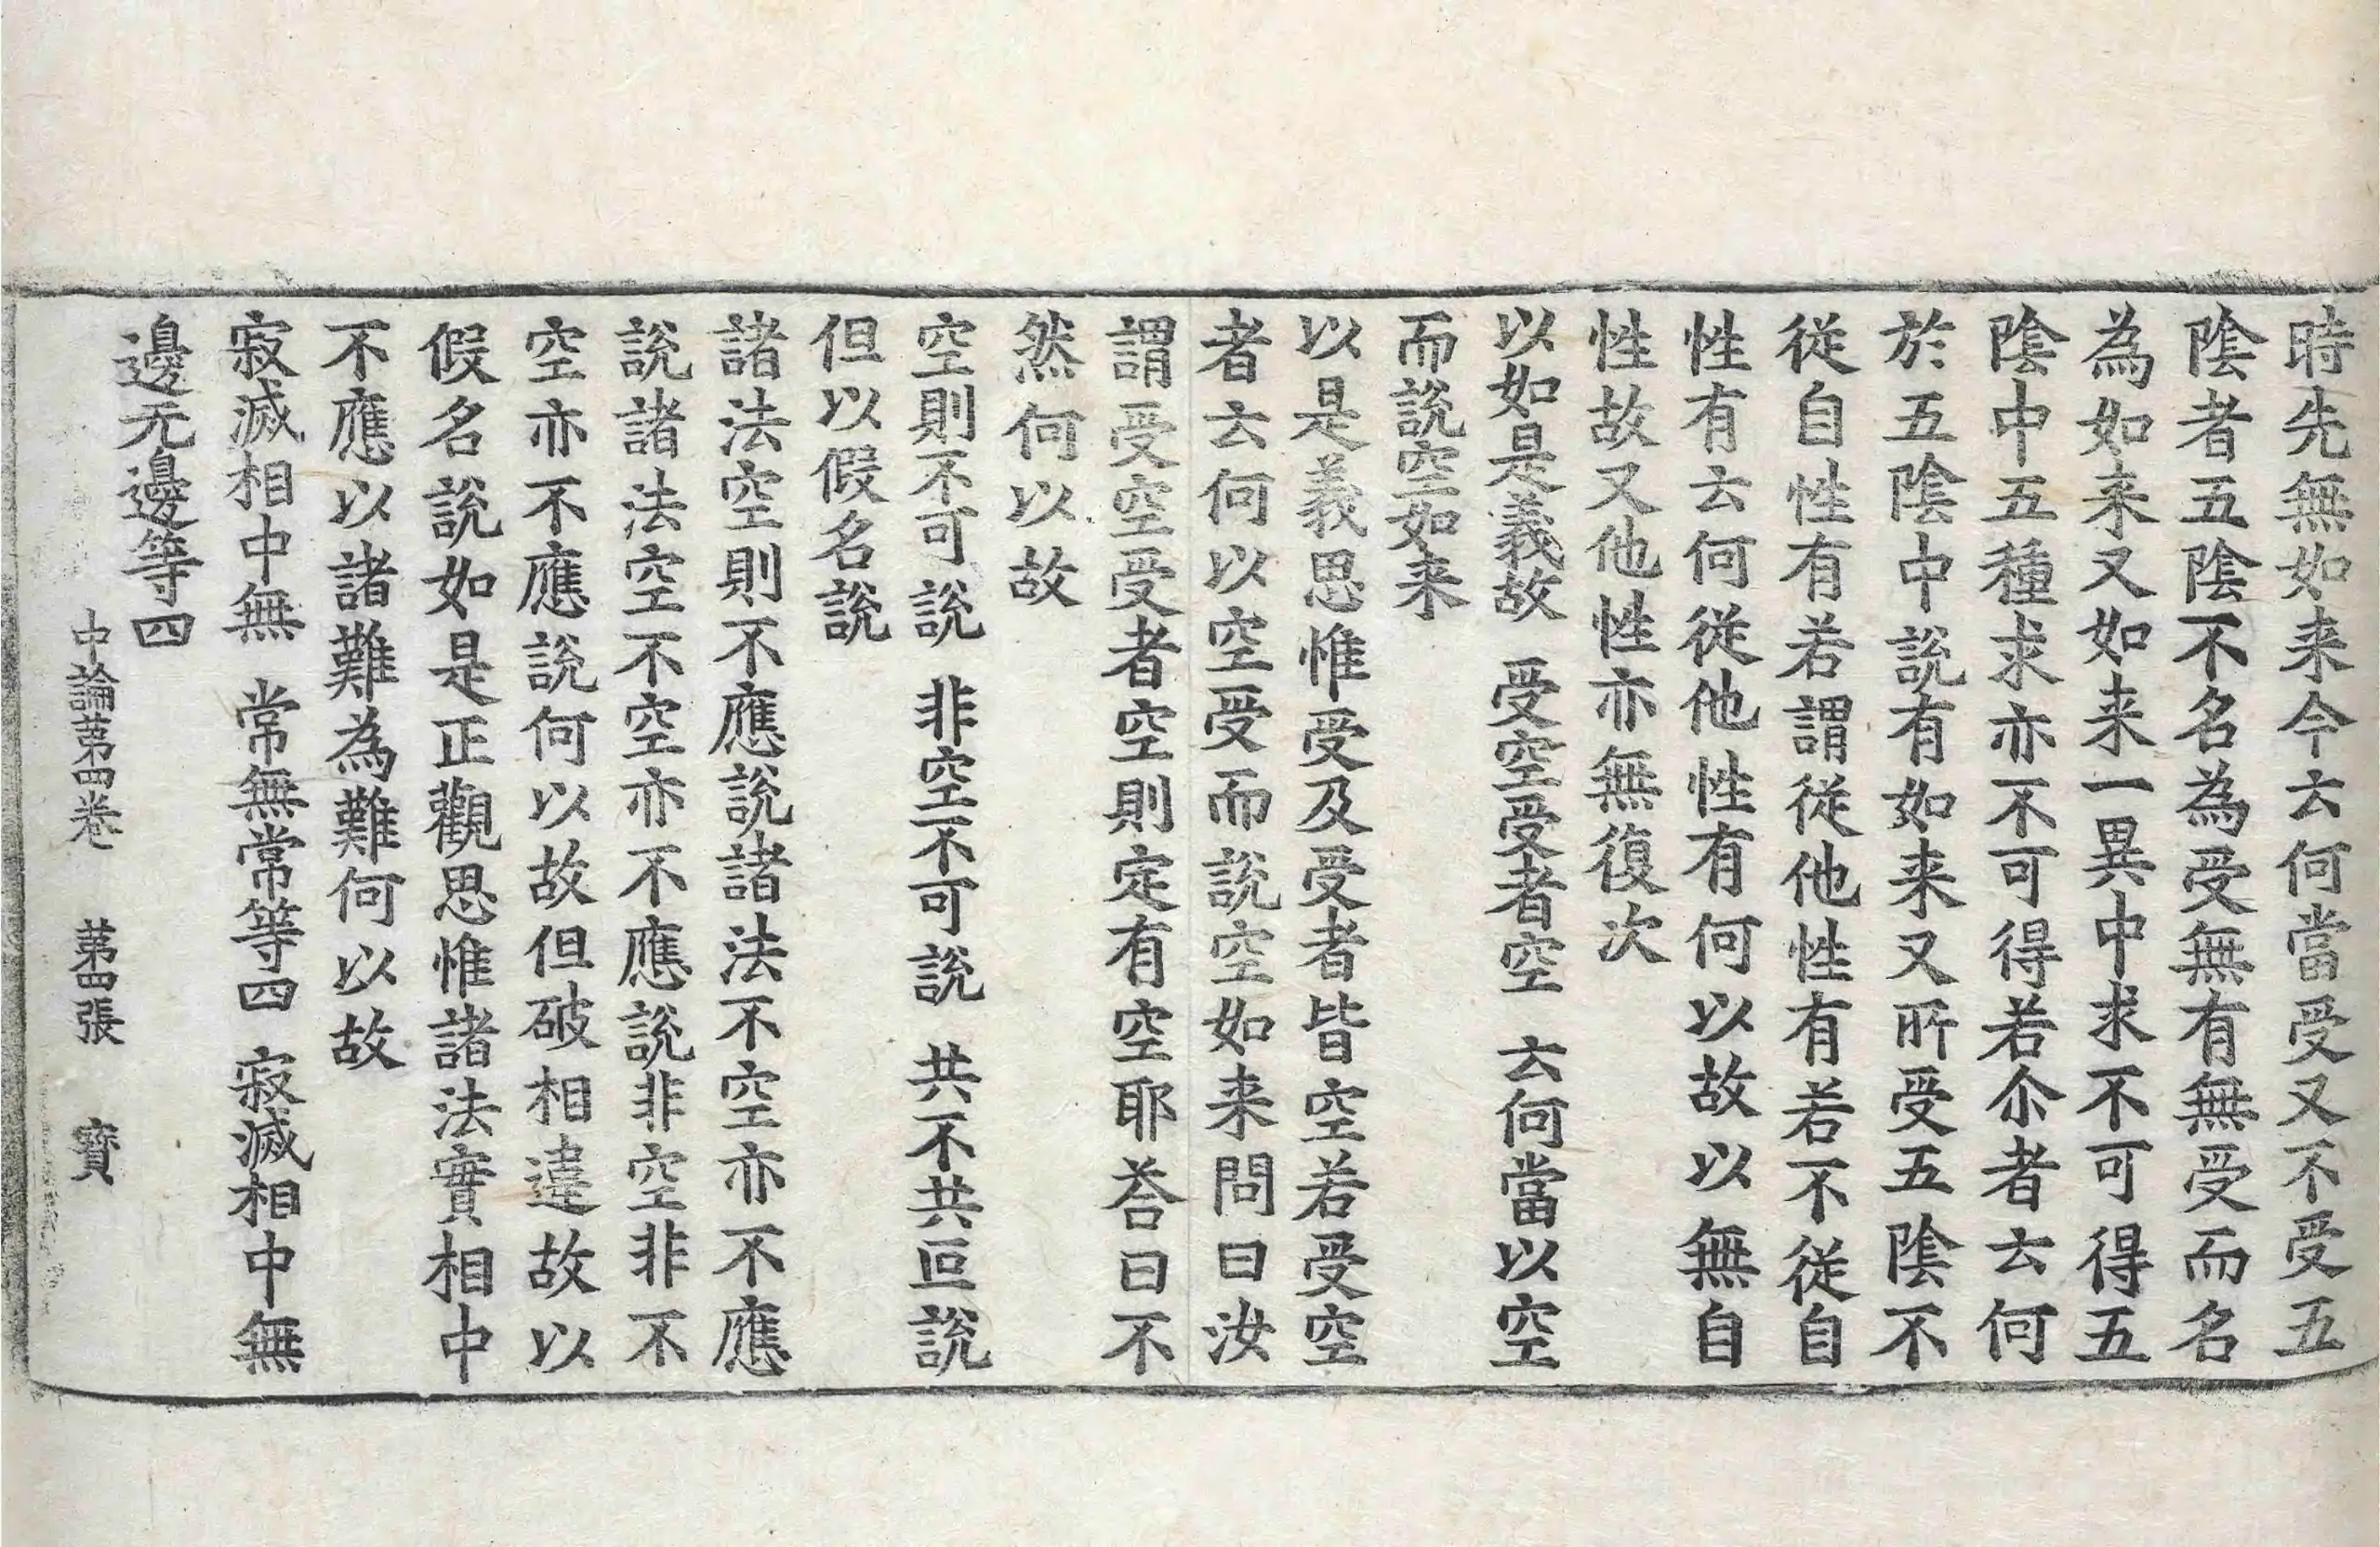 時先無如来今云何當受又不受五
陰者五陰不名為受無有無受而名
為如来又如来一異中求不可得五
陰中五種求亦不可得若尒者云何
於五陰中說有如来又所受五陰不
從自性有若謂從他性有若不從自
性有云何從他性有何以故以無自
性故又他性亦無復次
以如是義故 受空受者空 云何當以空
而說空如来
以是義思惟受及受者皆空若受空
者云何以空受而說空如来問曰汝
謂受空受者空則定有空耶荅曰不
然何以故
空則不可說 非空不可說 共不共叵說
但以假名說
諸法空則不應說諸法不空亦不應
說諸法空不空亦不應說非空非不
空亦不應說何以故但破相違故以
假名說如是正觀思惟諸法實相中
不應以諸難為難何以故
寂滅相中無 常無常等四 寂滅相中無
邊无邊等四
中論苐四卷 苐四張 寳